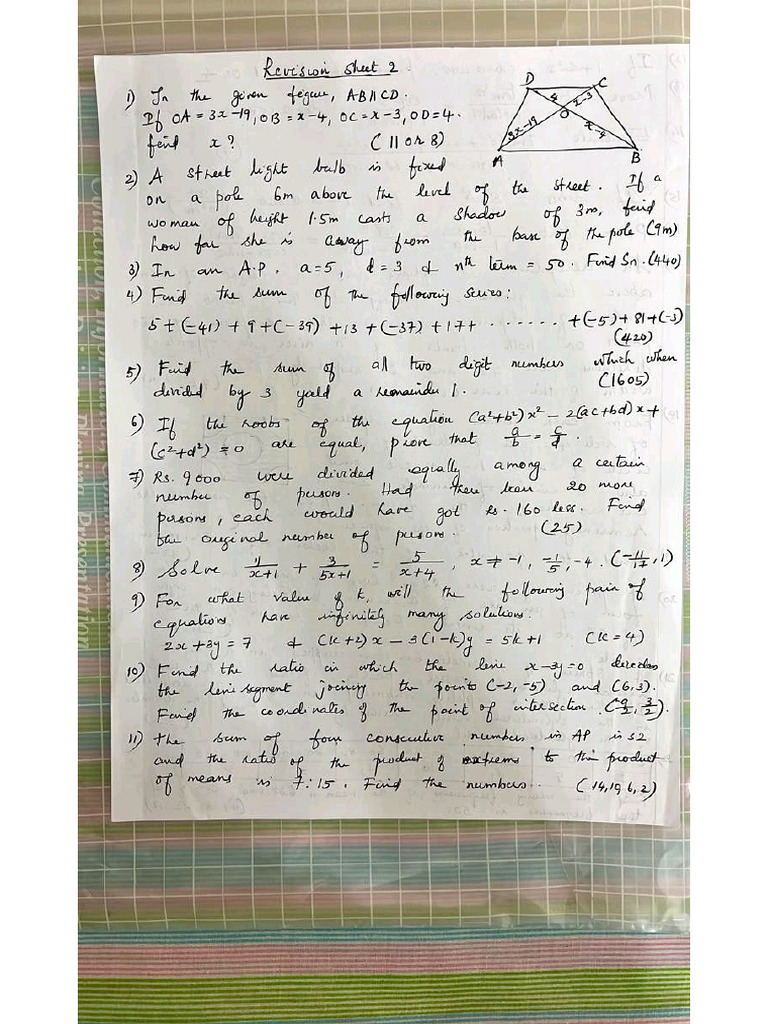 Revision Sheet 2.
1) In the given figure, AB||CD.
If OA = 3x-19, OB = x-4, OC = x-3, OD = 4.
find x? (11 or 8)
D C
4 x-3
O
3x-19 x-4
A B
2) A street light bulb is fixed
on a pole 6m above the level of the street. If a
woman of height 1.5m casts a shadow of 3m, find
how far she is away from the base of the pole (9m)
3) In an A.P. a=5, d=3 & nth term = 50. Find Sn. (440)
4) Find the sum of the following series:
5+(-41)+9+(-39)+13+(-37)+17+ ...... +(-5)+81+(-3)
(420)
5) Find the sum of all two digit numbers which when
divided by 3 yield a remainder 1. (1605)
6) If the roots of the equation (a²+b²)x² - 2(ac+bd)x+
(c²+d²) = 0 are equal, prove that a/b = c/d.
7) Rs. 9000 were divided equally among a certain
number of persons. Had there been 20 more
persons, each would have got Rs. 160 less. Find
the original number of persons. (25)
8) Solve 1/(x+1) + 3/(5x+1) = 5/(x+4), x ≠ -1, -1/5, -4. (-11/17, 1)
9) For what value of k, will the following pair of
equations have infinitely many solutions.
2x+3y = 7 & (k+2)x - 3(1-k)y = 5k+1 (k=4)
10) Find the ratio in which the line x-3y=0 divides
the line segment joining the points (-2,-5) and (6,3).
Find the coordinates of the point of intersection. (9/2, 3/2).
11) The sum of four consecutive numbers in AP is 32
and the ratio of the product of extrems to the product
of means is 7:15. Find the numbers. (14,10,6,2)